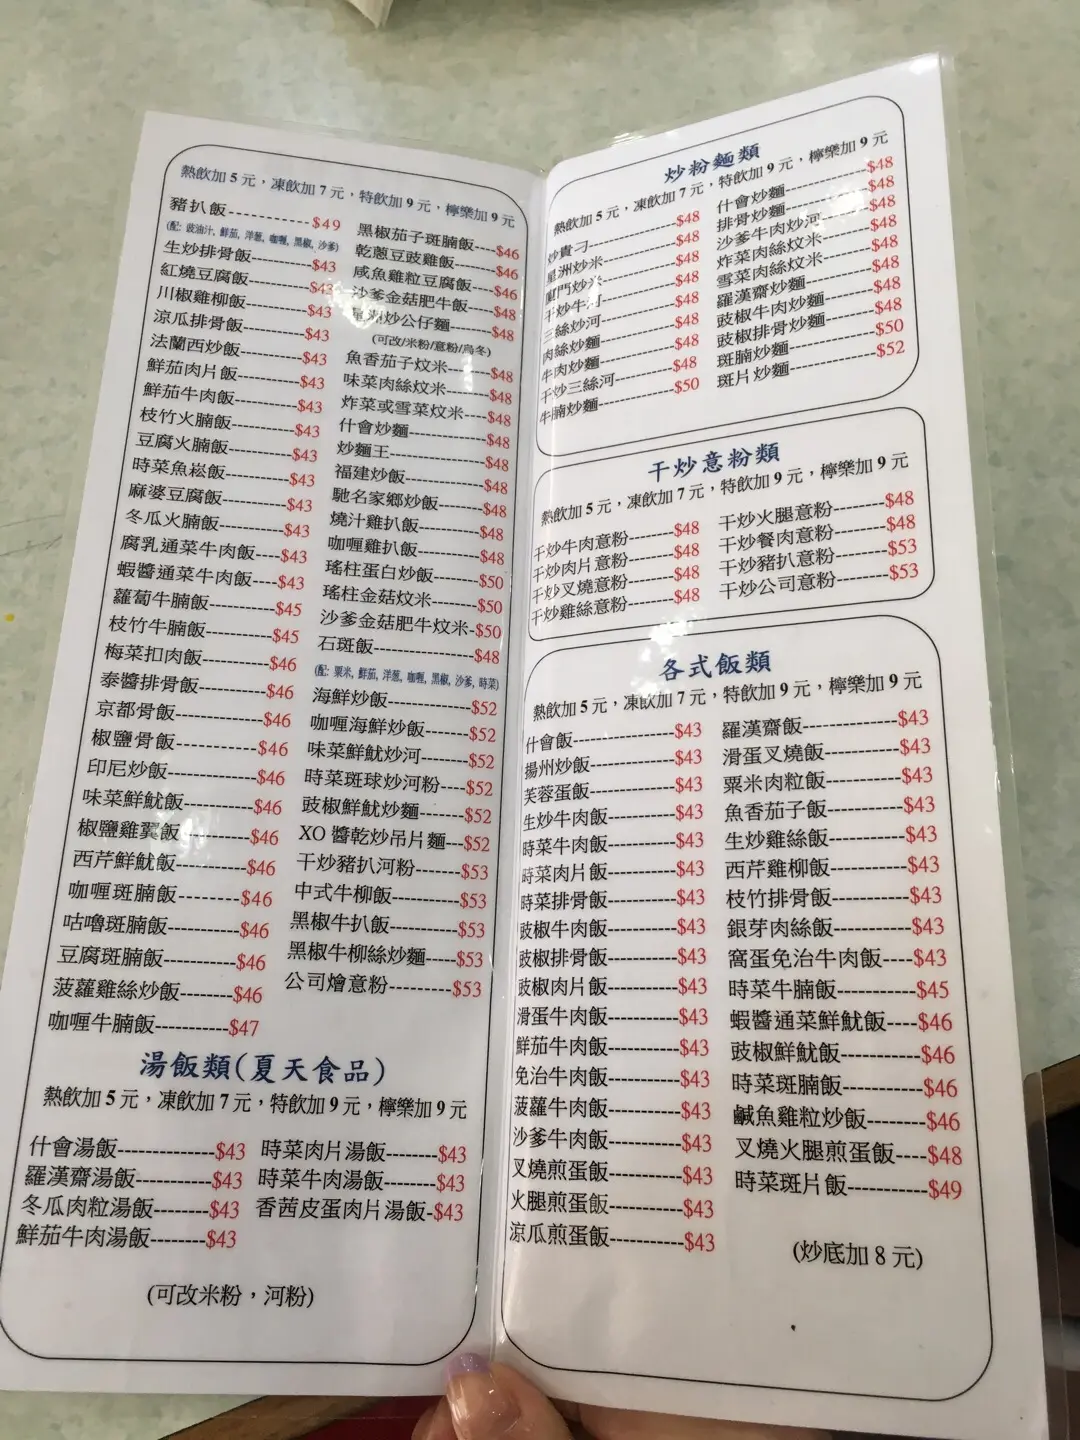 熱飲加 5 元，凍飲加 7 元，特飲加 9 元，檸樂加 9 元
豬扒飯-----------$49
(配: 豉油汁, 鮮茄, 洋葱, 咖喱, 黑椒, 沙爹)
生炒排骨飯-----------$43
紅燒豆腐飯-----------$43
川椒雞柳飯-----------$43
涼瓜排骨飯-----------$43
法蘭西炒飯-----------$43
鮮茄肉片飯-----------$43
鮮茄牛肉飯-----------$43
枝竹火腩飯-----------$43
豆腐火腩飯-----------$43
時菜魚崧飯-----------$43
麻婆豆腐飯-----------$43
冬瓜火腩飯-----------$43
腐乳通菜牛肉飯----$43
蝦醬通菜牛肉飯----$43
蘿蔔牛腩飯-----------$45
枝竹牛腩飯-----------$45
梅菜扣肉飯-----------$46
泰醬排骨飯-----------$46
京都骨飯-----------$46
椒鹽骨飯-----------$46
印尼炒飯-----------$46
味菜鮮魷飯-----------$46
椒鹽雞翼飯-----------$46
西芹鮮魷飯-----------$46
咖喱斑腩飯-----------$46
咕嚕斑腩飯-----------$46
豆腐斑腩飯-----------$46
菠蘿雞絲炒飯-------$46
咖喱牛腩飯-----------$47
黑椒茄子斑腩飯----$46
乾蔥豆豉雞飯-------$46
咸魚雞粒豆腐飯----$46
沙爹金菇肥牛飯----$48
星洲炒公仔麵-------$48
(可改/米粉/意粉/烏冬)
魚香茄子炆米-------$48
味菜肉絲炆米-------$48
炸菜或雪菜炆米----$48
什會炒麵-----------$48
炒麵王-----------$48
福建炒飯-----------$48
馳名家鄉炒飯-------$48
燒汁雞扒飯-----------$48
咖喱雞扒飯-----------$48
瑤柱蛋白炒飯-------$50
瑤柱金菇炆米-------$50
沙爹金菇肥牛炆米-$50
石斑飯-----------$48
(配: 粟米, 鮮茄, 洋葱, 咖喱, 黑椒, 沙爹, 時菜)
海鮮炒飯-----------$52
咖喱海鮮炒飯-------$52
味菜鮮魷炒河-------$52
時菜斑球炒河粉----$52
豉椒鮮魷炒麵-------$52
XO 醬乾炒吊片麵---$52
干炒豬扒河粉-------$53
中式牛柳飯-----------$53
黑椒牛扒飯-----------$53
黑椒牛柳絲炒麵----$53
公司燴意粉----------$53
湯飯類(夏天食品)
熱飲加 5 元，凍飲加 7 元，特飲加 9 元，檸樂加 9 元
什會湯飯-------------$43
羅漢齋湯飯-----------$43
冬瓜肉粒湯飯-------$43
鮮茄牛肉湯飯-------$43
時菜肉片湯飯-------$43
時菜牛肉湯飯-------$43
香茜皮蛋肉片湯飯-$43
(可改米粉，河粉)
炒粉麵類
熱飲加 5 元，凍飲加 7 元，特飲加 9 元，檸樂加 9 元
炒貴刁-----------$48
星洲炒米-----------$48
廈門炒米-----------$48
干炒牛河-----------$48
三絲炒河-----------$48
肉絲炒麵-----------$48
牛肉炒麵-----------$48
干炒三絲河-------$48
牛腩炒麵-----------$50
什會炒麵-----------$48
排骨炒麵-----------$48
沙爹牛肉炒河-------$48
炸菜肉絲炆米-------$48
雪菜肉絲炆米-------$48
羅漢齋炒麵-------$48
豉椒牛肉炒麵-------$48
豉椒排骨炒麵-------$48
斑腩炒麵-----------$50
斑片炒麵-----------$52
干炒意粉類
熱飲加 5 元，凍飲加 7 元，特飲加 9 元，檸樂加 9 元
干炒牛肉意粉-------$48
干炒肉片意粉-------$48
干炒叉燒意粉-------$48
干炒雞絲意粉-------$48
干炒火腿意粉-------$48
干炒餐肉意粉-------$48
干炒豬扒意粉-------$53
干炒公司意粉-------$53
各式飯類
熱飲加 5 元，凍飲加 7 元，特飲加 9 元，檸樂加 9 元
什會飯-------------$43
揚州炒飯-----------$43
芙蓉蛋飯-----------$43
生炒牛肉飯---------$43
時菜牛肉飯---------$43
時菜肉片飯---------$43
時菜排骨飯---------$43
豉椒牛肉飯---------$43
豉椒排骨飯---------$43
豉椒肉片飯---------$43
滑蛋牛肉飯---------$43
鮮茄牛肉飯---------$43
免治牛肉飯---------$43
菠蘿牛肉飯---------$43
沙爹牛肉飯---------$43
叉燒煎蛋飯---------$43
火腿煎蛋飯---------$43
涼瓜煎蛋飯---------$43
羅漢齋飯-------------$43
滑蛋叉燒飯-----------$43
粟米肉粒飯-----------$43
魚香茄子飯-----------$43
生炒雞絲飯-----------$43
西芹雞柳飯-----------$43
枝竹排骨飯-----------$43
銀芽肉絲飯-----------$43
窩蛋免治牛肉飯----$43
時菜牛腩飯-----------$45
蝦醬通菜鮮魷飯----$46
豉椒鮮魷飯-----------$46
時菜斑腩飯-----------$46
鹹魚雞粒炒飯-------$46
叉燒火腿煎蛋飯----$48
時菜斑片飯-----------$49
(炒底加 8 元)